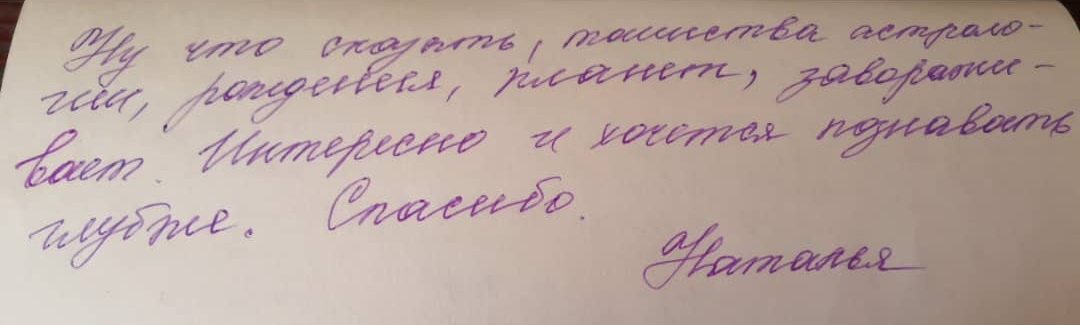 Ну что сказать, таинства астроло-
гии, рождения, планет, заворажи-
вает. Интересно и хочется познавать
глубже. Спасибо.
Наталья